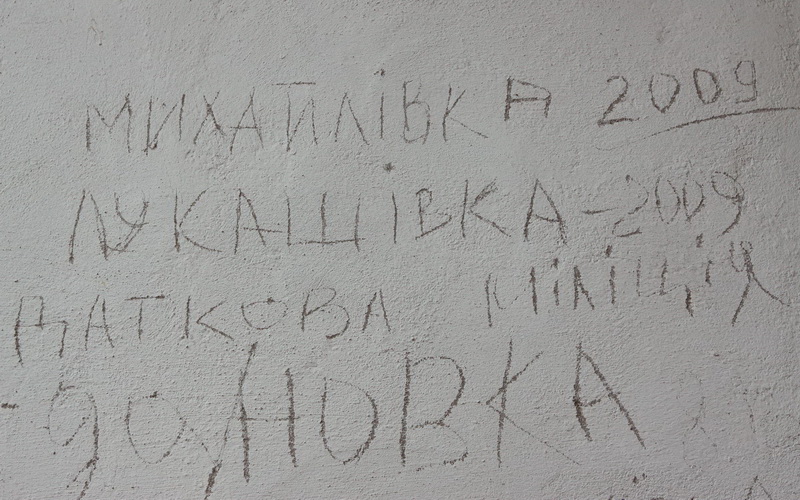 МИХАЙЛІВКА 2009
ЛУКАШІВКА - 2009
ДАТКОВА МІЛІЦІЯ